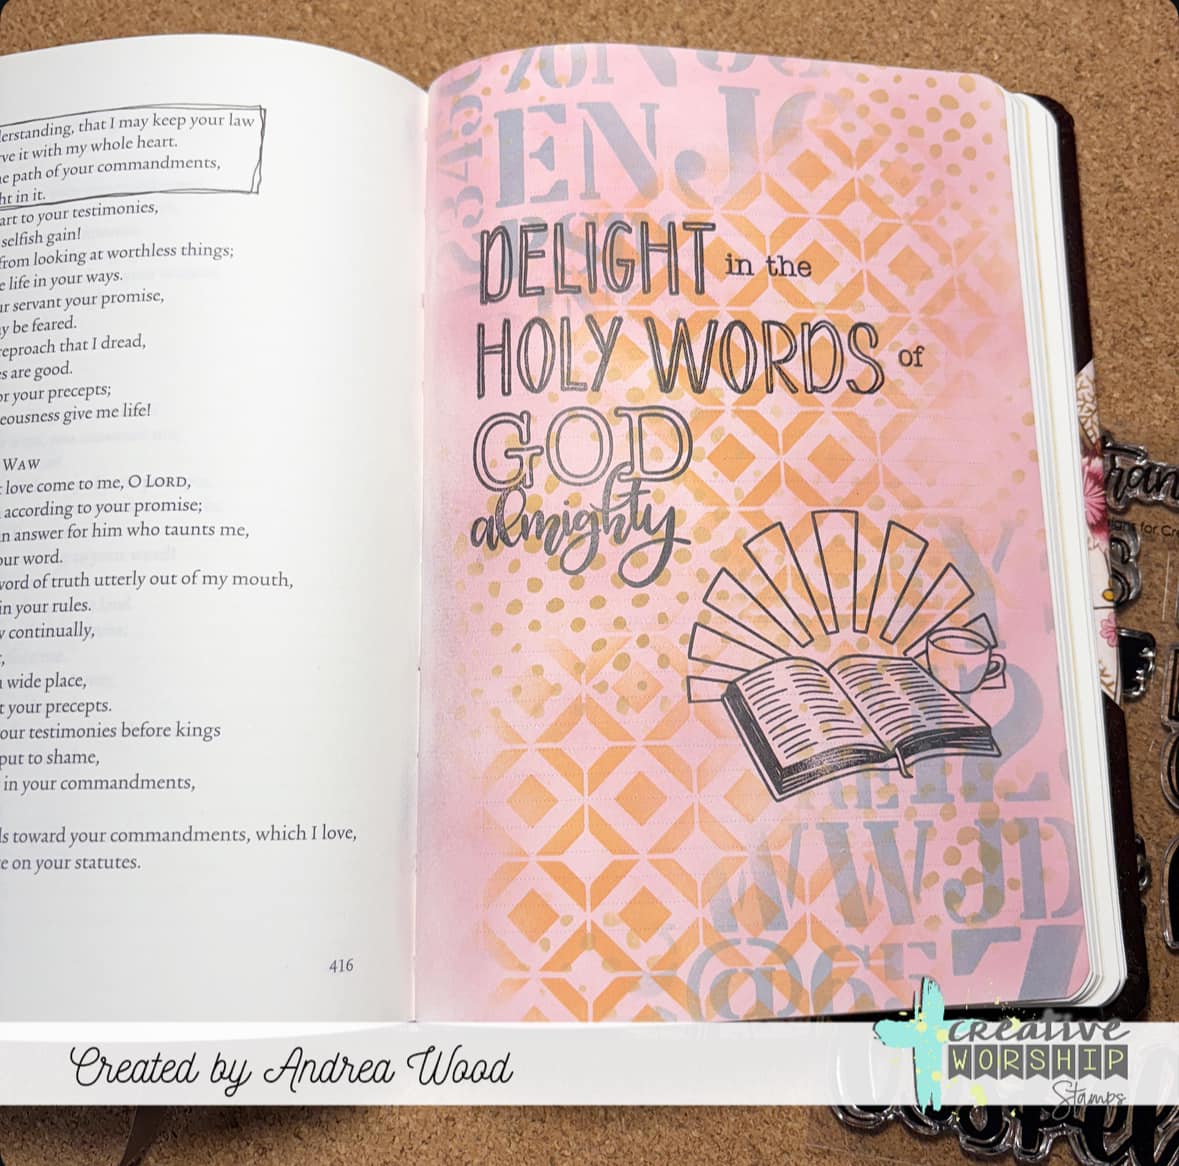 erstanding, that I may keep your law
ve it with my whole heart.
e path of your commandments,
ht in it.
art to your testimonies,
selfish gain!
from looking at worthless things;
e life in your ways.
ur servant your promise,
y be feared.
eproach that I dread,
s are good.
or your precepts;
eousness give me life!
WAW
love come to me, O LORD,
according to your promise;
n answer for him who taunts me,
our word.
word of truth utterly out of my mouth,
in your rules.
continually,
wide place,
t your precepts.
our testimonies before kings
put to shame,
in your commandments,
ls toward your commandments, which I love,
e on your statutes.
416
ENJ
DELIGHT in the
HOLY WORDS of
GOD
almighty
WWJD
Created by Andrea Wood
creative
WORSHIP
Stamps